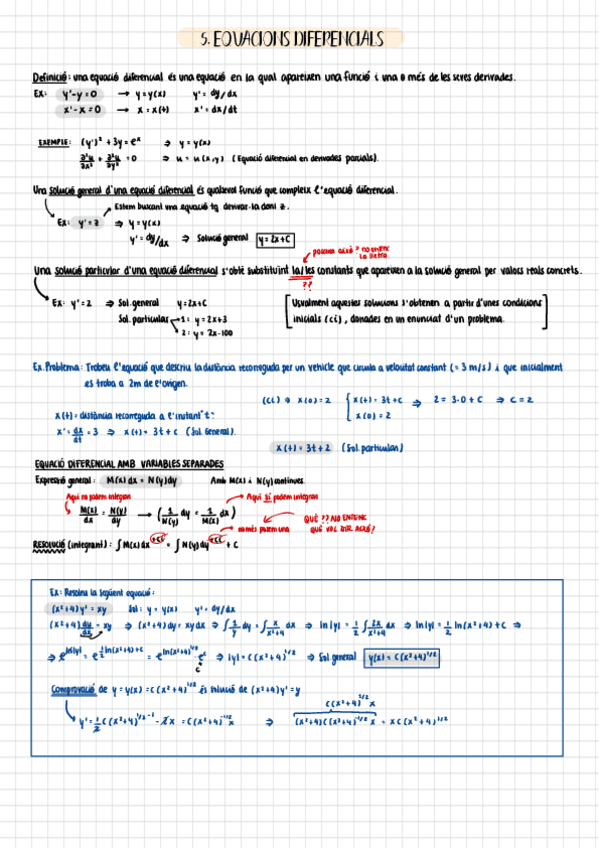 5. EQUACIONS DIFERENCIALS
Definició: una equació diferencial és una equació en la qual apareixen una funció i una o més de les seves derivades.
Ex: y'-y=0 → y=y(x) y'=dy/dx
x'-x=0 → x=x(t) x'=dx/dt
EXEMPLE: (y')²+3y=eˣ ⇒ y=y(x)
∂²u/∂x² + ∂²u/∂y² = 0 ⇒ u=u(x,y) (Equació diferencial en derivades parcials).
Una solució general d'una equació diferencial és qualsevol funció que compleix l'equació diferencial.
Estem buscant una equació tq derivar-la doni 2.
Ex: y'=2 ⇒ y=y(x)
y'=dy/dx ⇒ Solució general y=2x+C
posava això? no entenc la lletra
Una solució particular d'una equació diferencial s'obté substituint la/les constants que apareixen a la solució general per valors reals concrets.
??
Ex: y'=2 ⇒ Sol. general y=2x+C
Sol. particular 1: y=2x+3
2: y=2x-100
[Usualment aquestes solucions s'obtenen a partir d'unes condicions
inicials (ci), donades en un enunciat d'un problema.]
Ex. Problema: Trobeu l'equació que descriu la distància recorreguda per un vehicle que circula a velocitat constant (=3 m/s) i que inicialment
es troba a 2m de l'origen.
(Ci) ⇒ x(0)=2 { x(t)=3t+C ⇒ 2=3·0+C ⇒ C=2
x(0)=2
x(t)=distància recorreguda a l'instant "t".
x'=dx/dt=3 ⇒ x(t)=3t+C (Sol. General).
x(t)=3t+2 (Sol. particular)
EQUACIÓ DIFERENCIAL AMB VARIABLES SEPARADES
Expressió general: M(x)dx=N(y)dy Amb M(x) i N(y) continues.
Aquí no podem integrar
Aquí sí podem integrar
M(x)/dx = N(y)/dy → (1/N(y) dy = 1/M(x) dx)
només posem una
QUÈ?? NO ENTENC
QUÈ VOL DIR AIXÒ?
RESOLUCIÓ (integrant): ∫M(x)dx +C1 = ∫N(y)dy +C2 + C
Ex: Resoleu la següent equació:
(x²+4)y'=xy Sol: y=y(x) y'=dy/dx
(x²+4)dy/dx=xy ⇒ (x²+4)dy=xydx ⇒ ∫1/y dy=∫x/x²+4 dx ⇒ ln|y|=1/2∫2x/x²+4 dx ⇒ ln|y|=1/2 ln(x²+4)+C ⇒
⇒ e^ln|y| = e^1/2 ln(x²+4)+C = e^ln(x²+4)^1/2 · e^C ⇒ |y|=C(x²+4)^1/2 ⇒ Sol general y(x)=C(x²+4)^1/2
C
Comprovació de y=y(x)=C(x²+4)^1/2 és solució de (x²+4)y'=y
C(x²+4)^1/2 x
y'=1/2 C(x²+4)^1/2-1 · 2x = C(x²+4)^-1/2 x ⇒ (x²+4)C(x²+4)^-1/2 x = xC(x²+4)^1/2